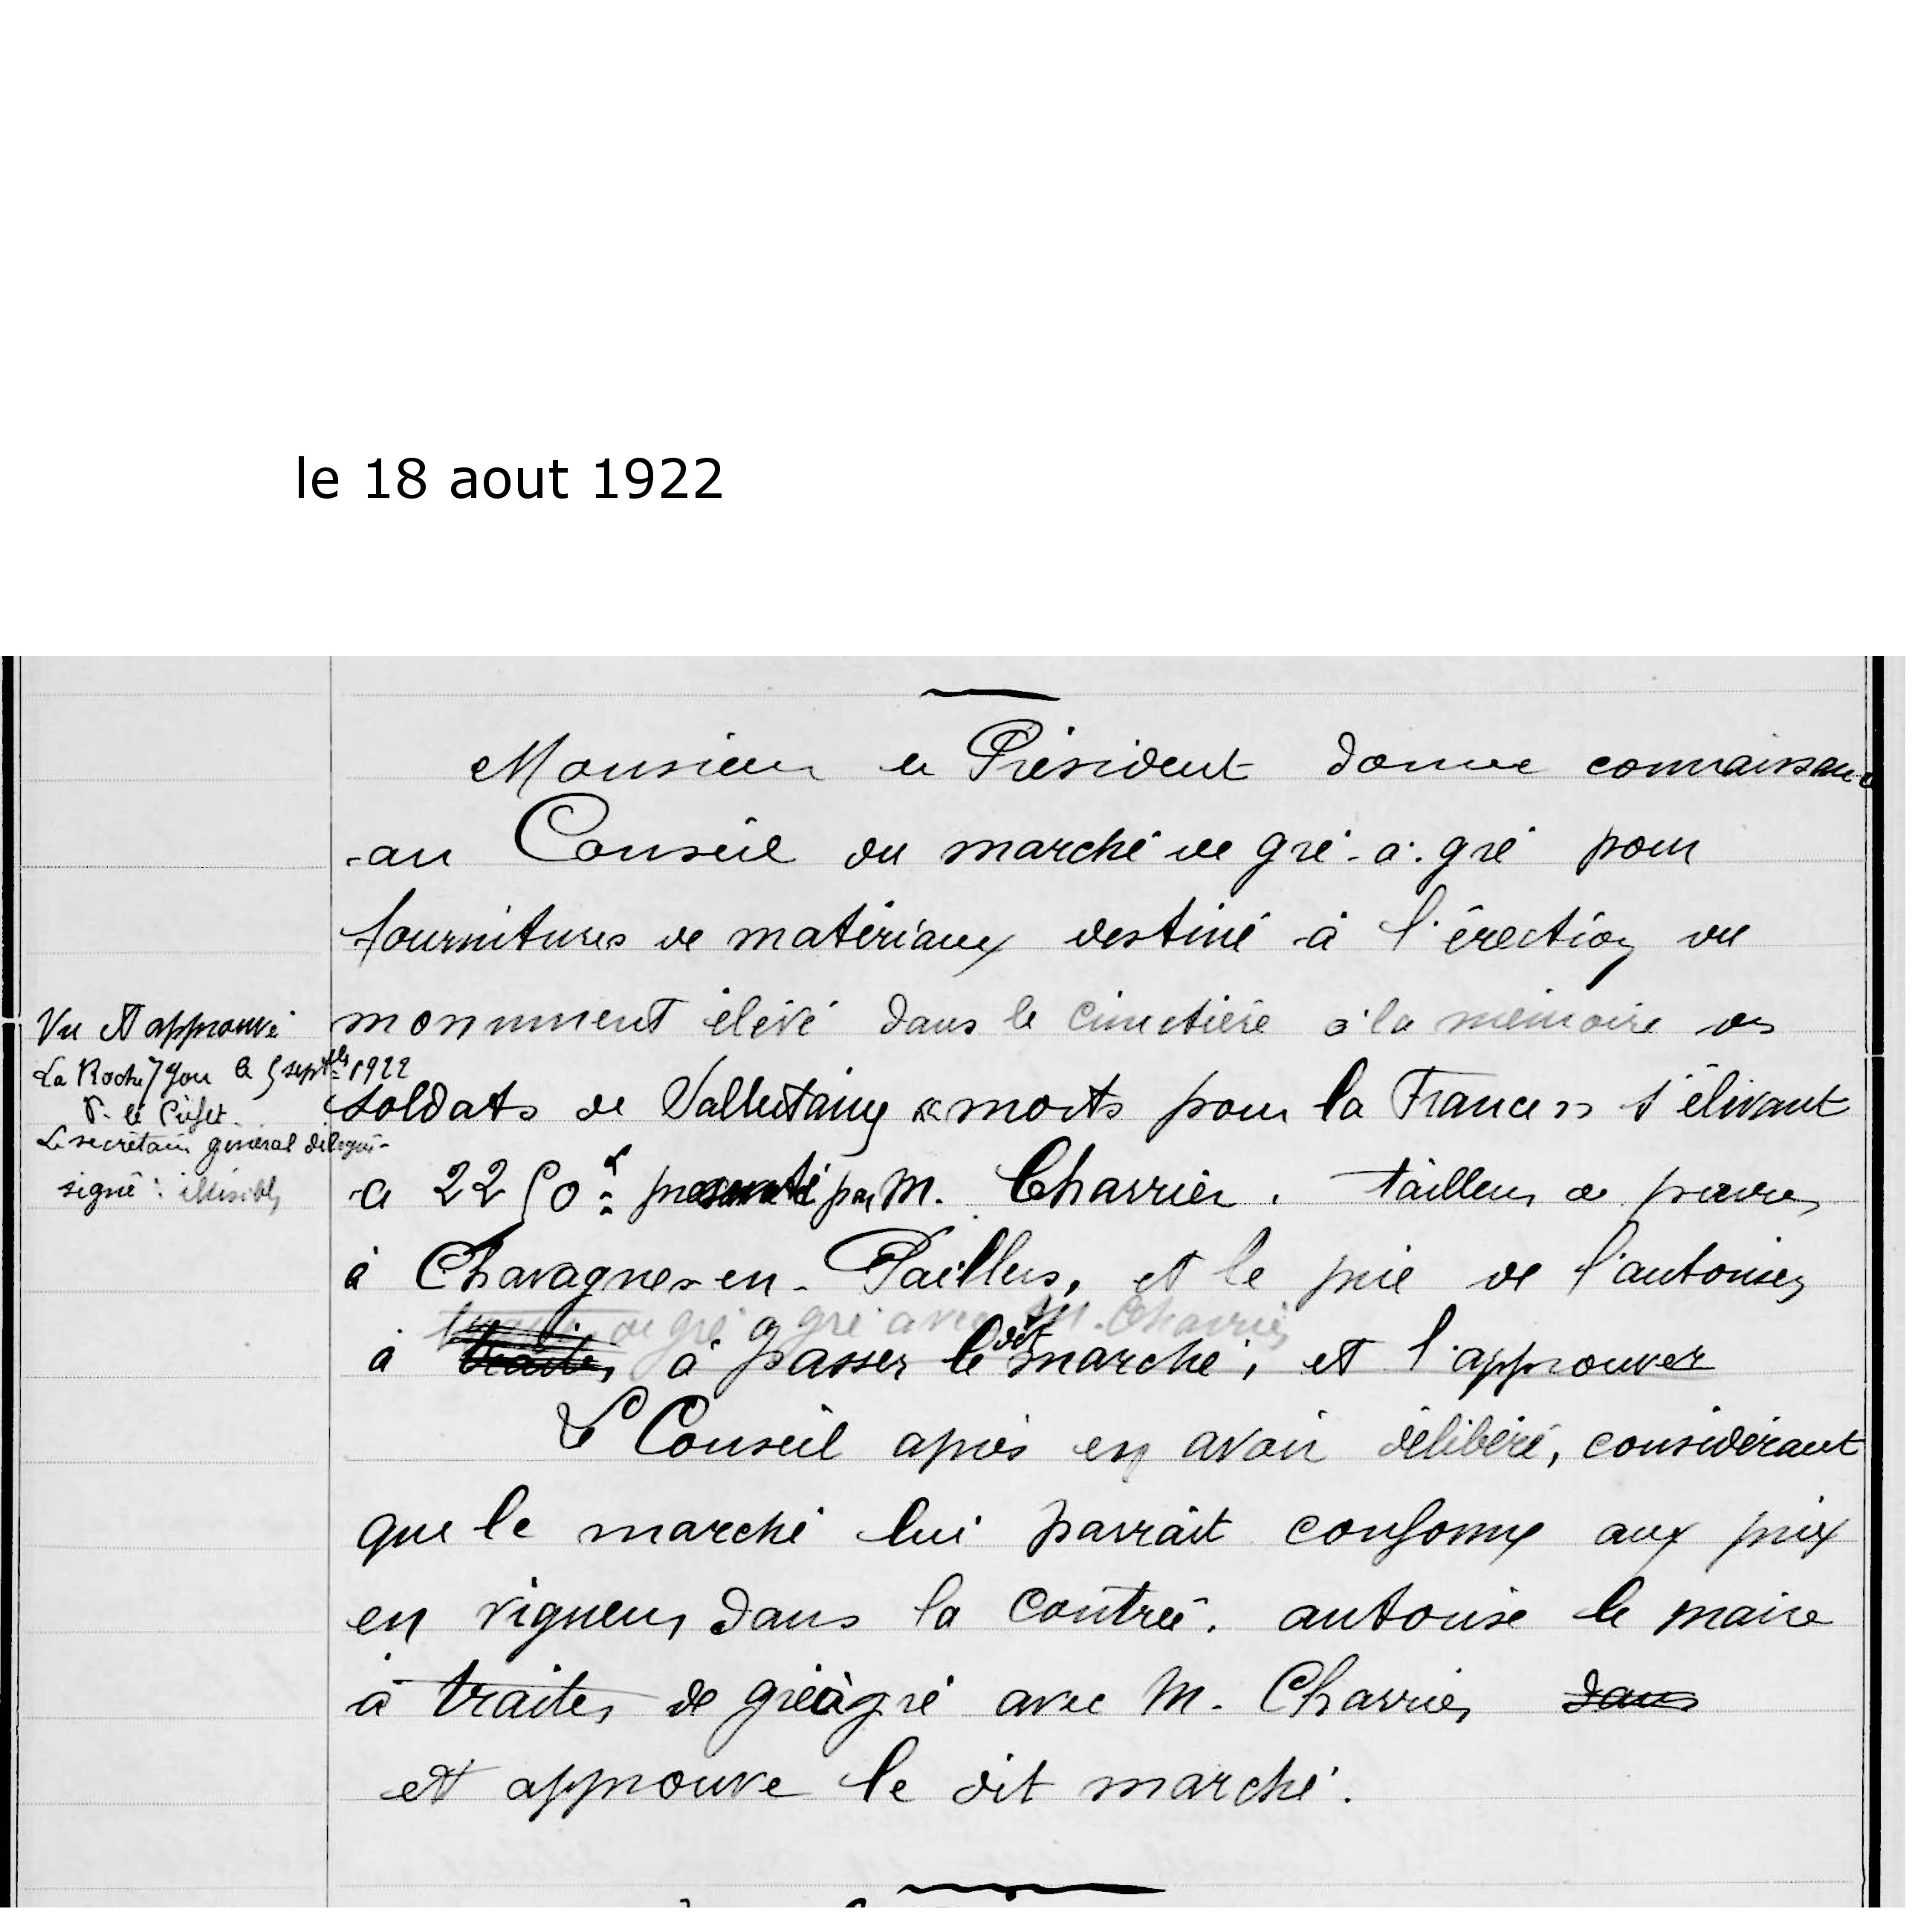 le 18 aout 1922
Monsieur le Président donne connaissance
au Conseil du marché de gré-à-gré pour
fournitures de matériaux destiné à l'érection du
monument élévé dans le cimetière à la mémoire des
soldats de "morts pour la France" s'élevant
à 2250 f presenté par M. Charrier. tailleur de pierres
à Chavagnes-en-Paillers, et le prie de l'autoriser
à traiter à passer le dit marché, et l'approuver
Le Conseil après en avoir délibéré, considérant
que le marché lui parraît conforme aux prix
en vigueur dans la contrée. autorise le maire
à traiter de gré à gré avec M. Charrier dans
et approuve le dit marché.
Vu et approuvé
La Roche s/ Yon le 5 septbre 1922
P. le Préfet
Le secrétaire général délégué
signé : illisible